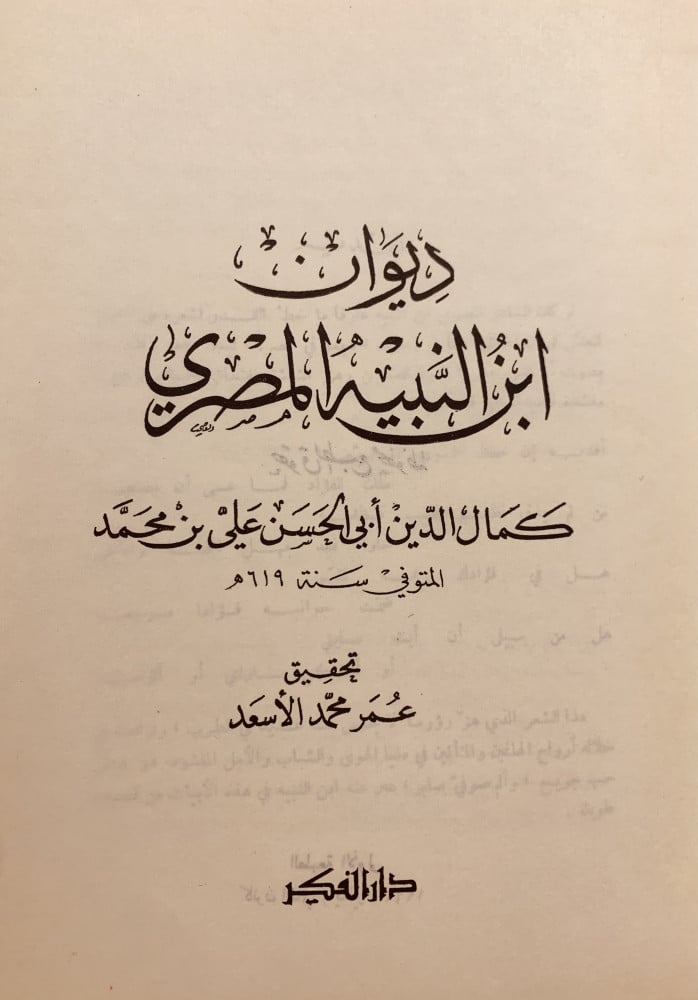 دِيوَان
ابنُ النَّبيه المصري
كمال الدّين أبي الحسَن عَلي بن محمَّد
المتوفي سَنة ٦١٩ه
تحقيق
عُمَر محمّد الأسعَد
دار الفكر